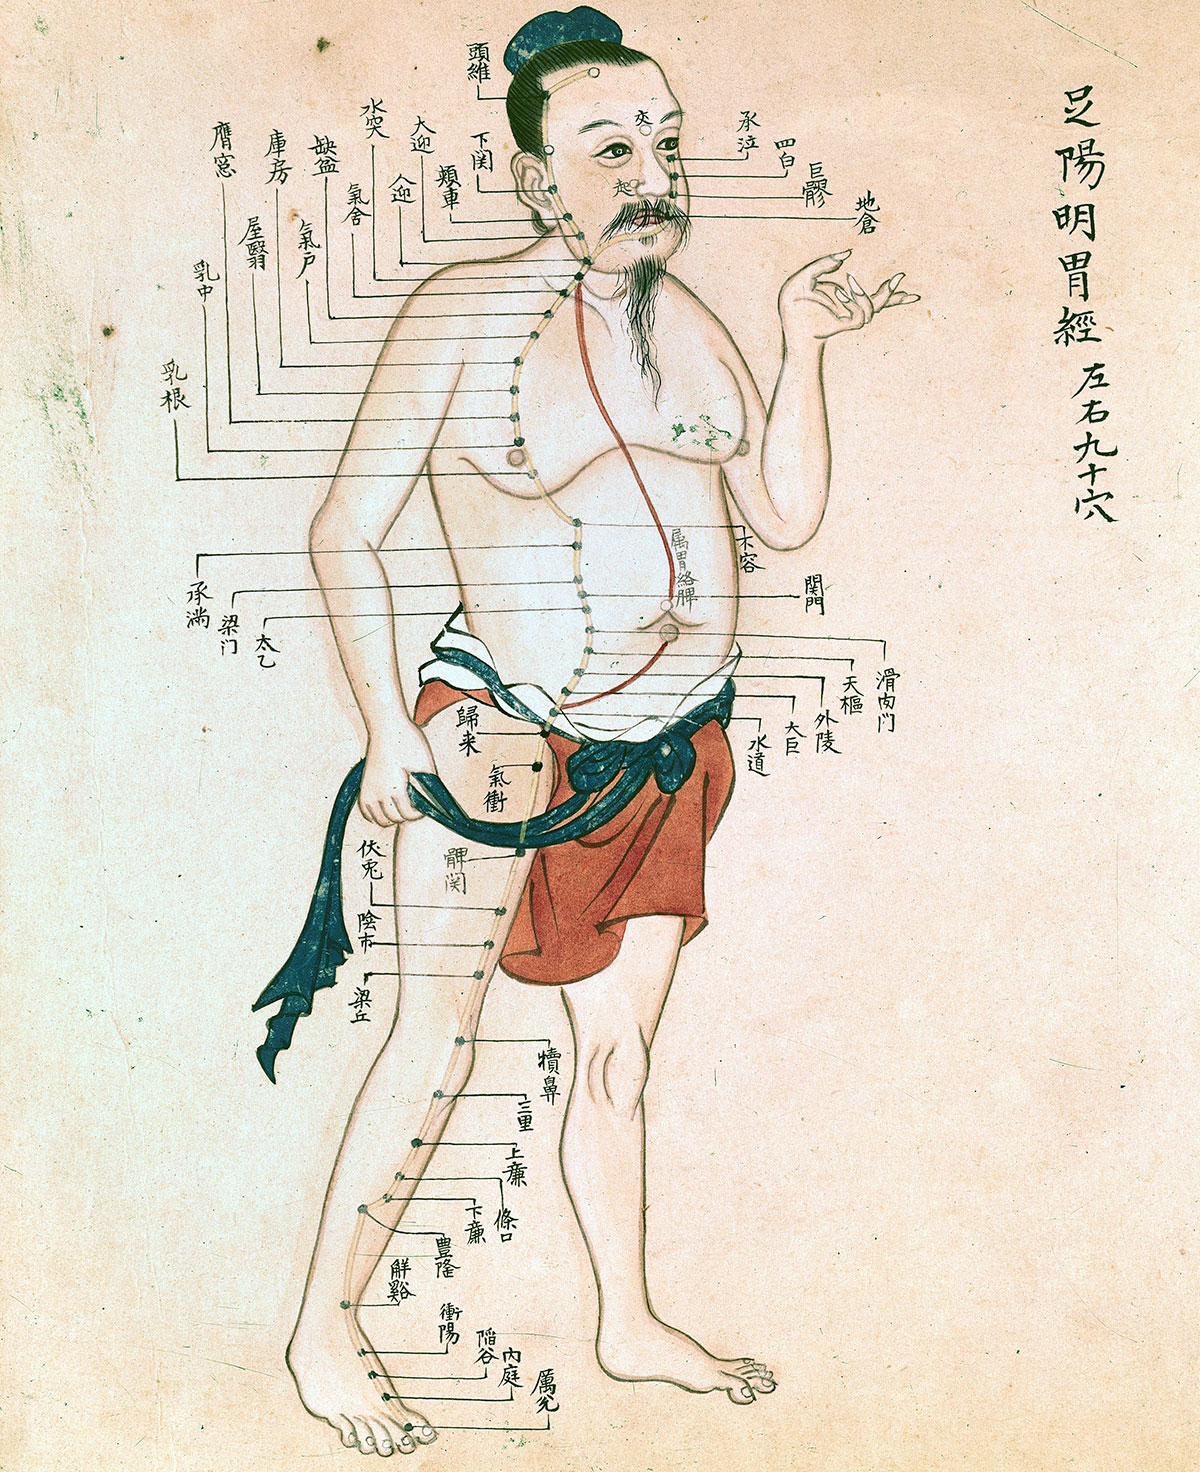 足陽明胃經 左右九十穴
頭維
下関
頬車
大迎
人迎
水突
氣舍
缺盆
氣户
庫房
屋翳
膺窓
乳中
乳根
夾
起
承泣
四白
巨髎
地倉
不容
属胃絡脾
関門
承満
梁门
太乙
滑肉门
天樞
外陵
大巨
水道
歸来
氣衝
髀関
伏兎
陰市
梁丘
犢鼻
三里
上廉
條口
下廉
豊隆
解谿
衝陽
陷谷
内庭
厲兊